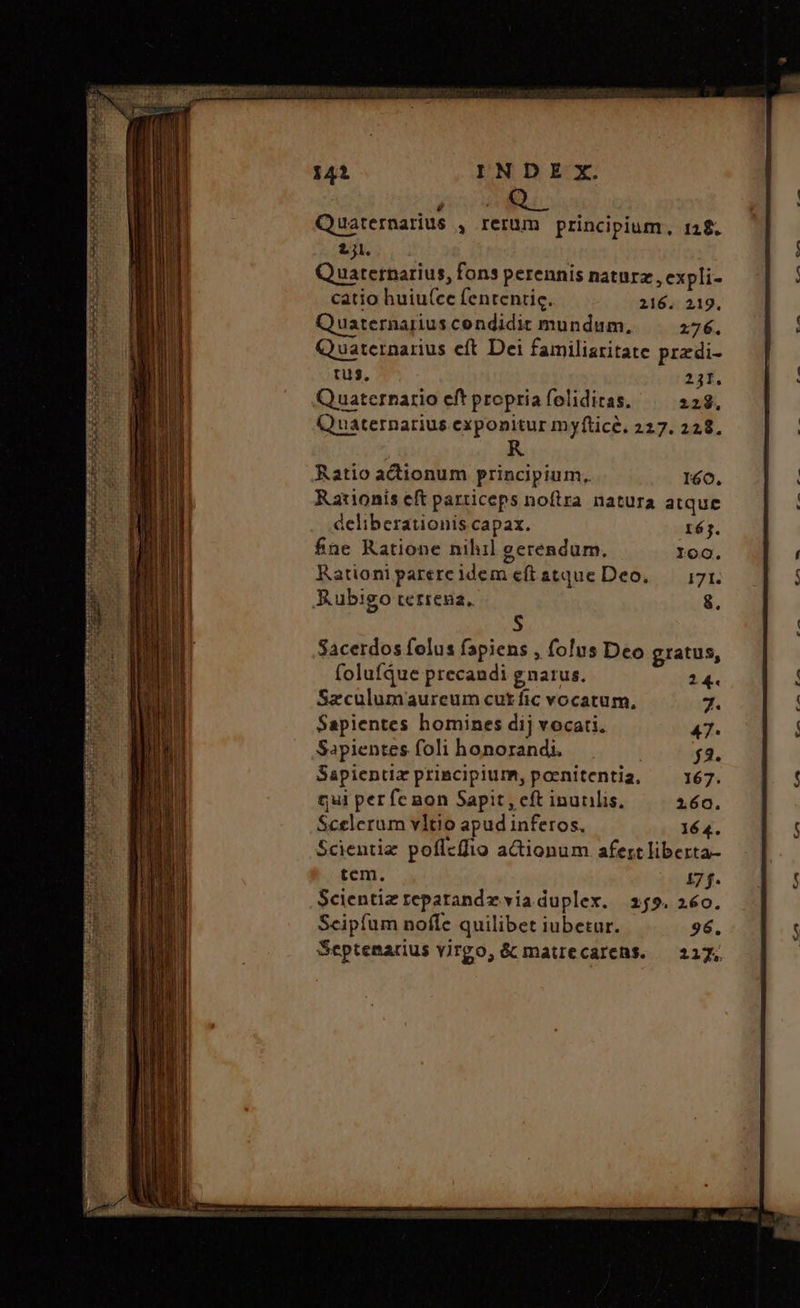 142 INDEX.
Q
Quaternarius, rerum principium. 128.
231.
Quaternarius, fons perennis naturæ, expli-
catio huiuſce ſententię. 216. 219.
Quaternarius condidit mundum. 276.
Quaternarius eſt Dei familiaritate prædi-
tus. 231.
Quaternario eſt propria ſoliditas. 228.
Quaternarius exponitur myſticè. 227. 228.
R
Ratio actionum principium. 160.
Rationis eſt particeps noſtra natura atque
deliberationis capax. 163.
ſine Ratione nihil gerendum. 100.
Rationi parere idem eſt atque Deo. 171.
Rubigo terrena. 8.
S
Sacerdos ſolus ſapiens, ſolus Deo gratus,
ſoluſque precandi gnarus. 24.
Sæculum aureum cur ſic vocatum. 7.
Sapientes homines dij vocati. 47.
Sapientes ſoli honorandi. 52.
Sapientiæ principium, pœnitentia. 167.
qui per ſe non Sapit, eſt inutilis. 260.
Scelerum vltio apud inferos. 164.
Scientiæ poſſeſſio actionum afert liberta-
tem. 175.
Scientiæ reparandæ via duplex. 259. 260.
Seipſum noſſe quilibet iubetur. 96.
Septenarius virgo, & matre carens. 217.